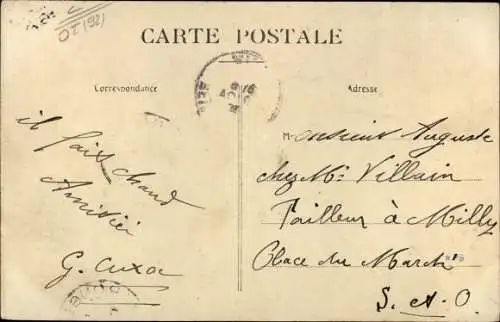 CARTE POSTALE
Correspondance
Adresse
il fait chaud
Amitiés
G. Cuxac
Monsieur Auguste
chez Mr Villain
Tailleur à Milly
Place du Marché
S. & O.